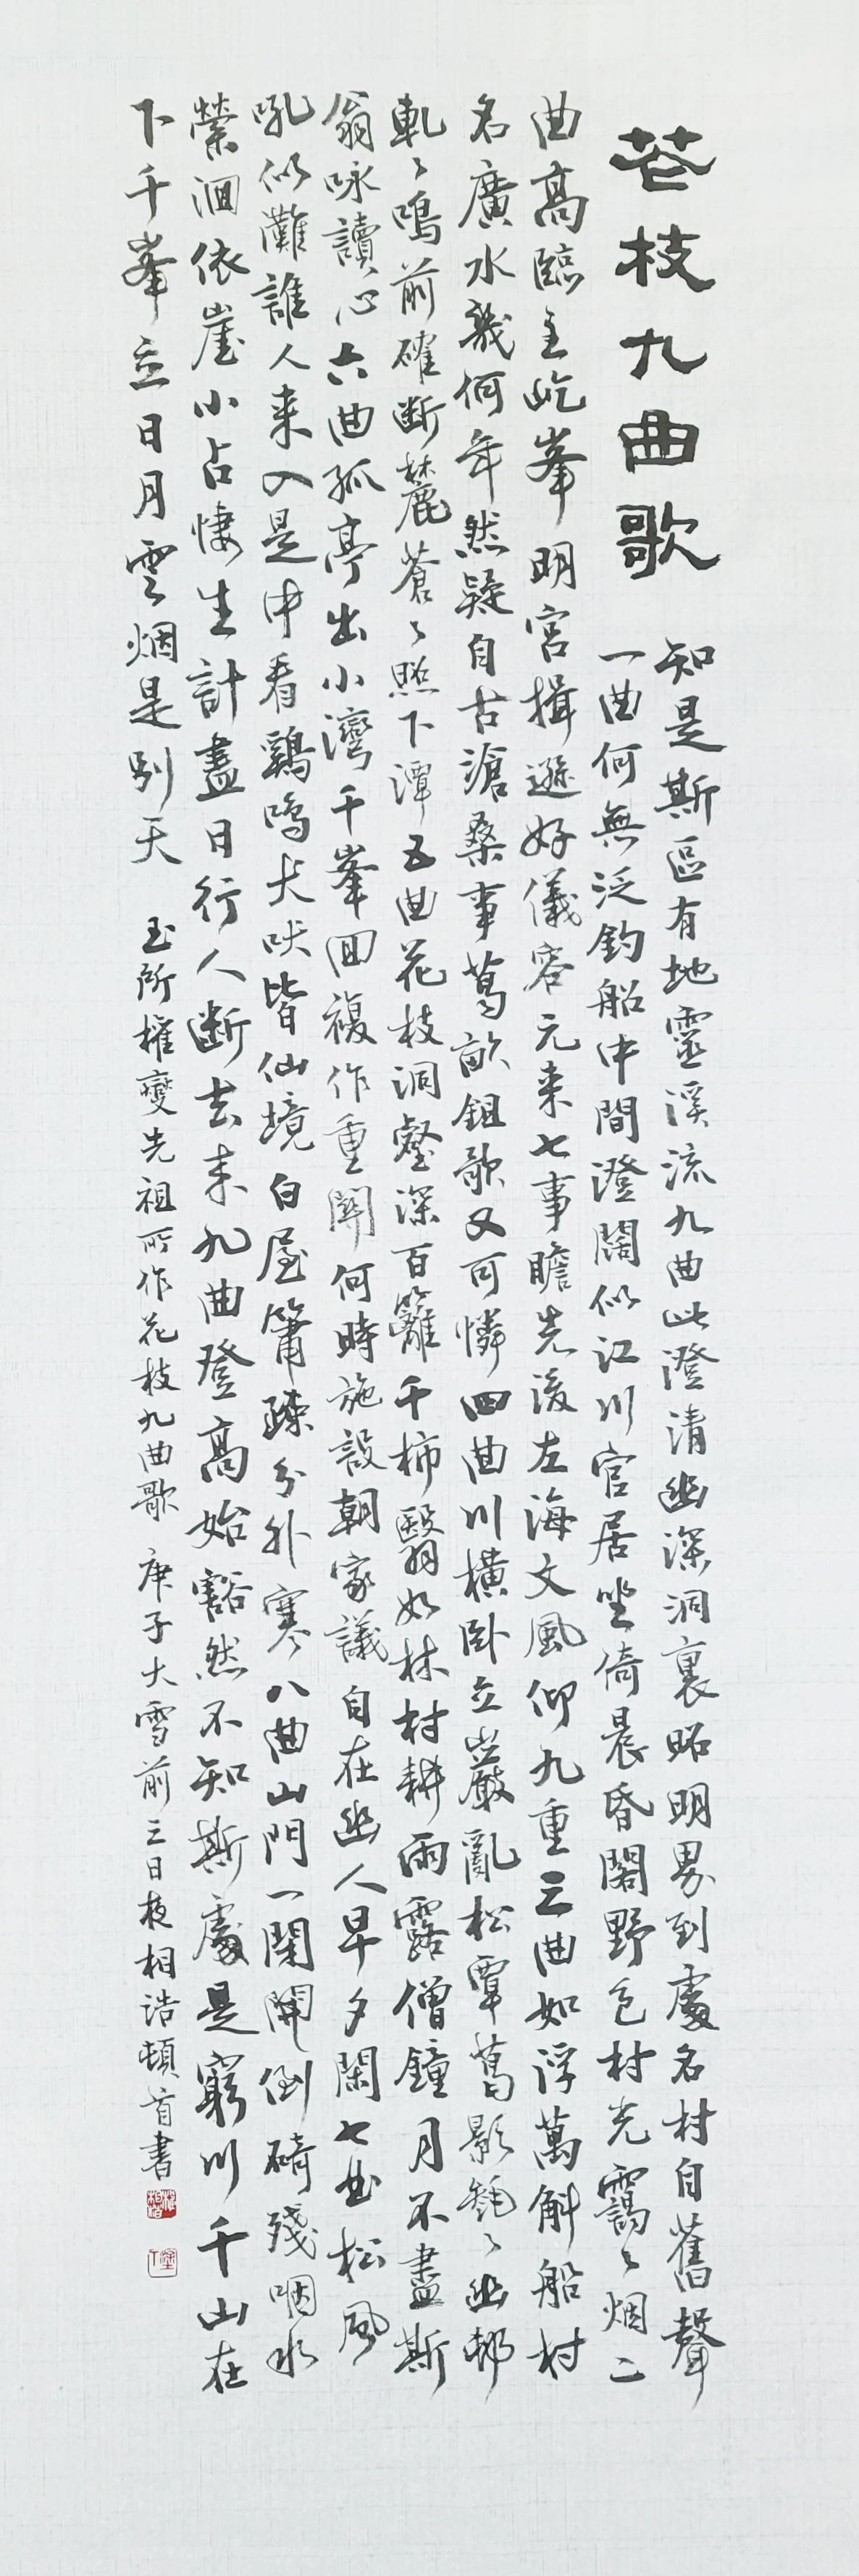 花枝九曲歌
知是斯區有地靈溪流九曲此澄清幽深洞裏昭明界到處名村自舊聲
一曲何無泛釣船中間澄闊似江川官居坐倚晨昏閣野色村光靄〻烟二
曲高臨主屹峯明宮揖遜好儀容元来七事瞻先後左海文風仰九重三曲如浮萬斛船村
名廣水幾何年然疑自古滄桑事葛畝鉏歌又可憐四曲川橫卧立巖亂松覃葛影毿〻幽邨
軋〻鳴前確断麓蒼〻照下潭五曲花枝洞壑深百籬千柿翳如林村耕雨露僧鐘月不盡斯
翁咏讀心六曲孤亭出小灣千峯回複作重關何時施設朝家議自在幽人早夕閑七曲松風
吼似灘誰人来入是中看鷄鳴犬吠皆仙境白屋簫疎分外寒八曲山門一閉開倒碕殘咽水
縈洄依崖小占悽生計盡日行人断去来九曲登高始豁然不知斯處是窮川千山在
下千峯立日月雲烟是別天 玉所權變先祖所作花枝九曲歌 庚子大雪前三日夜相浩頓首書